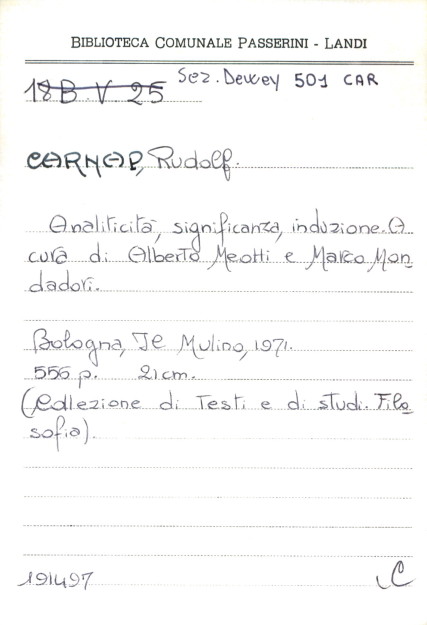 BIBLIOTECA COMUNALE PASSERINI - LANDI
18 B. V. 25 Sez. Dewey 501 CAR
CARNAP, Rudolf.
Analiticità, significanza, induzione. A
cura di Alberto Meotti e Marco Mon
dadori.
Bologna, Il Mulino, 1971.
556 p. 21 cm.
(Collezione di Testi e di studi. Filo
sofia).
191497